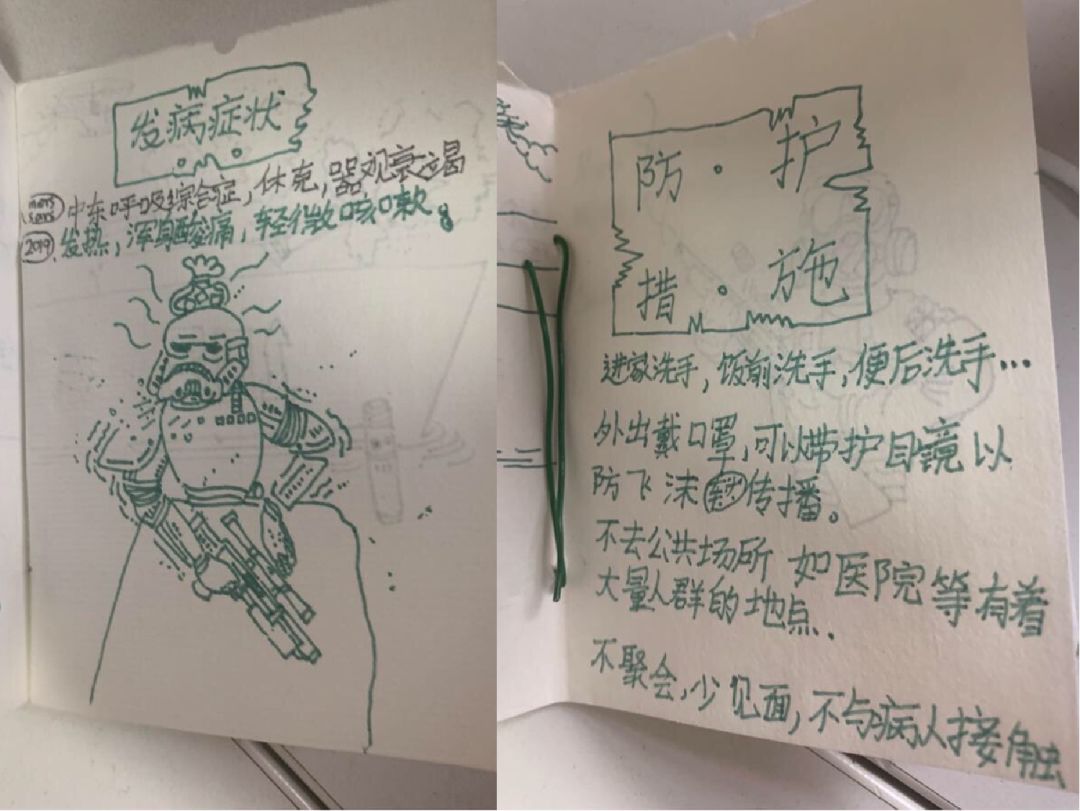 发病症状
mers sars 中东呼吸综合症,休克,器观衰竭
2019 发热,浑身酸痛,轻微咳嗽。
防·护
措·施
进家洗手,饭前洗手,便后洗手…
外出戴口罩,可以带护目镜以
防飞沫传播。
不去公共场所 如医院等有着
大量人群的地点.
不聚会,少见面,不与病人接触